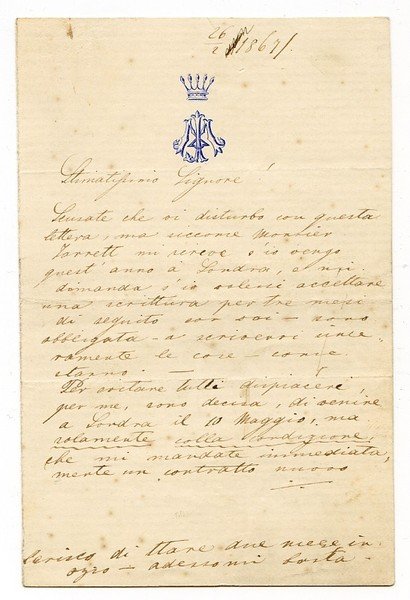 26/2 1867/.
Stimatissimo Signore!
Scusate che vi disturbo con questa
lettera, ma siccome Monsier
Jarrett mi scrive s'io vengo
quest' anno à Londra, e mi
domanda s'io volessi accettare
una scrittura per tre mesi
di seguito con voi – sono
obbligata – a scrivervi since
ramente le cose – come
stanno. –
Per evitare tutti dispiaceri,
per me, sono decisa, di venire
a Londra il 10 Maggio, ma
solamente colla condizione,
che mi mandate immediata,
mente un contratto nuovo
di stare due mese in
adesso mi basta –